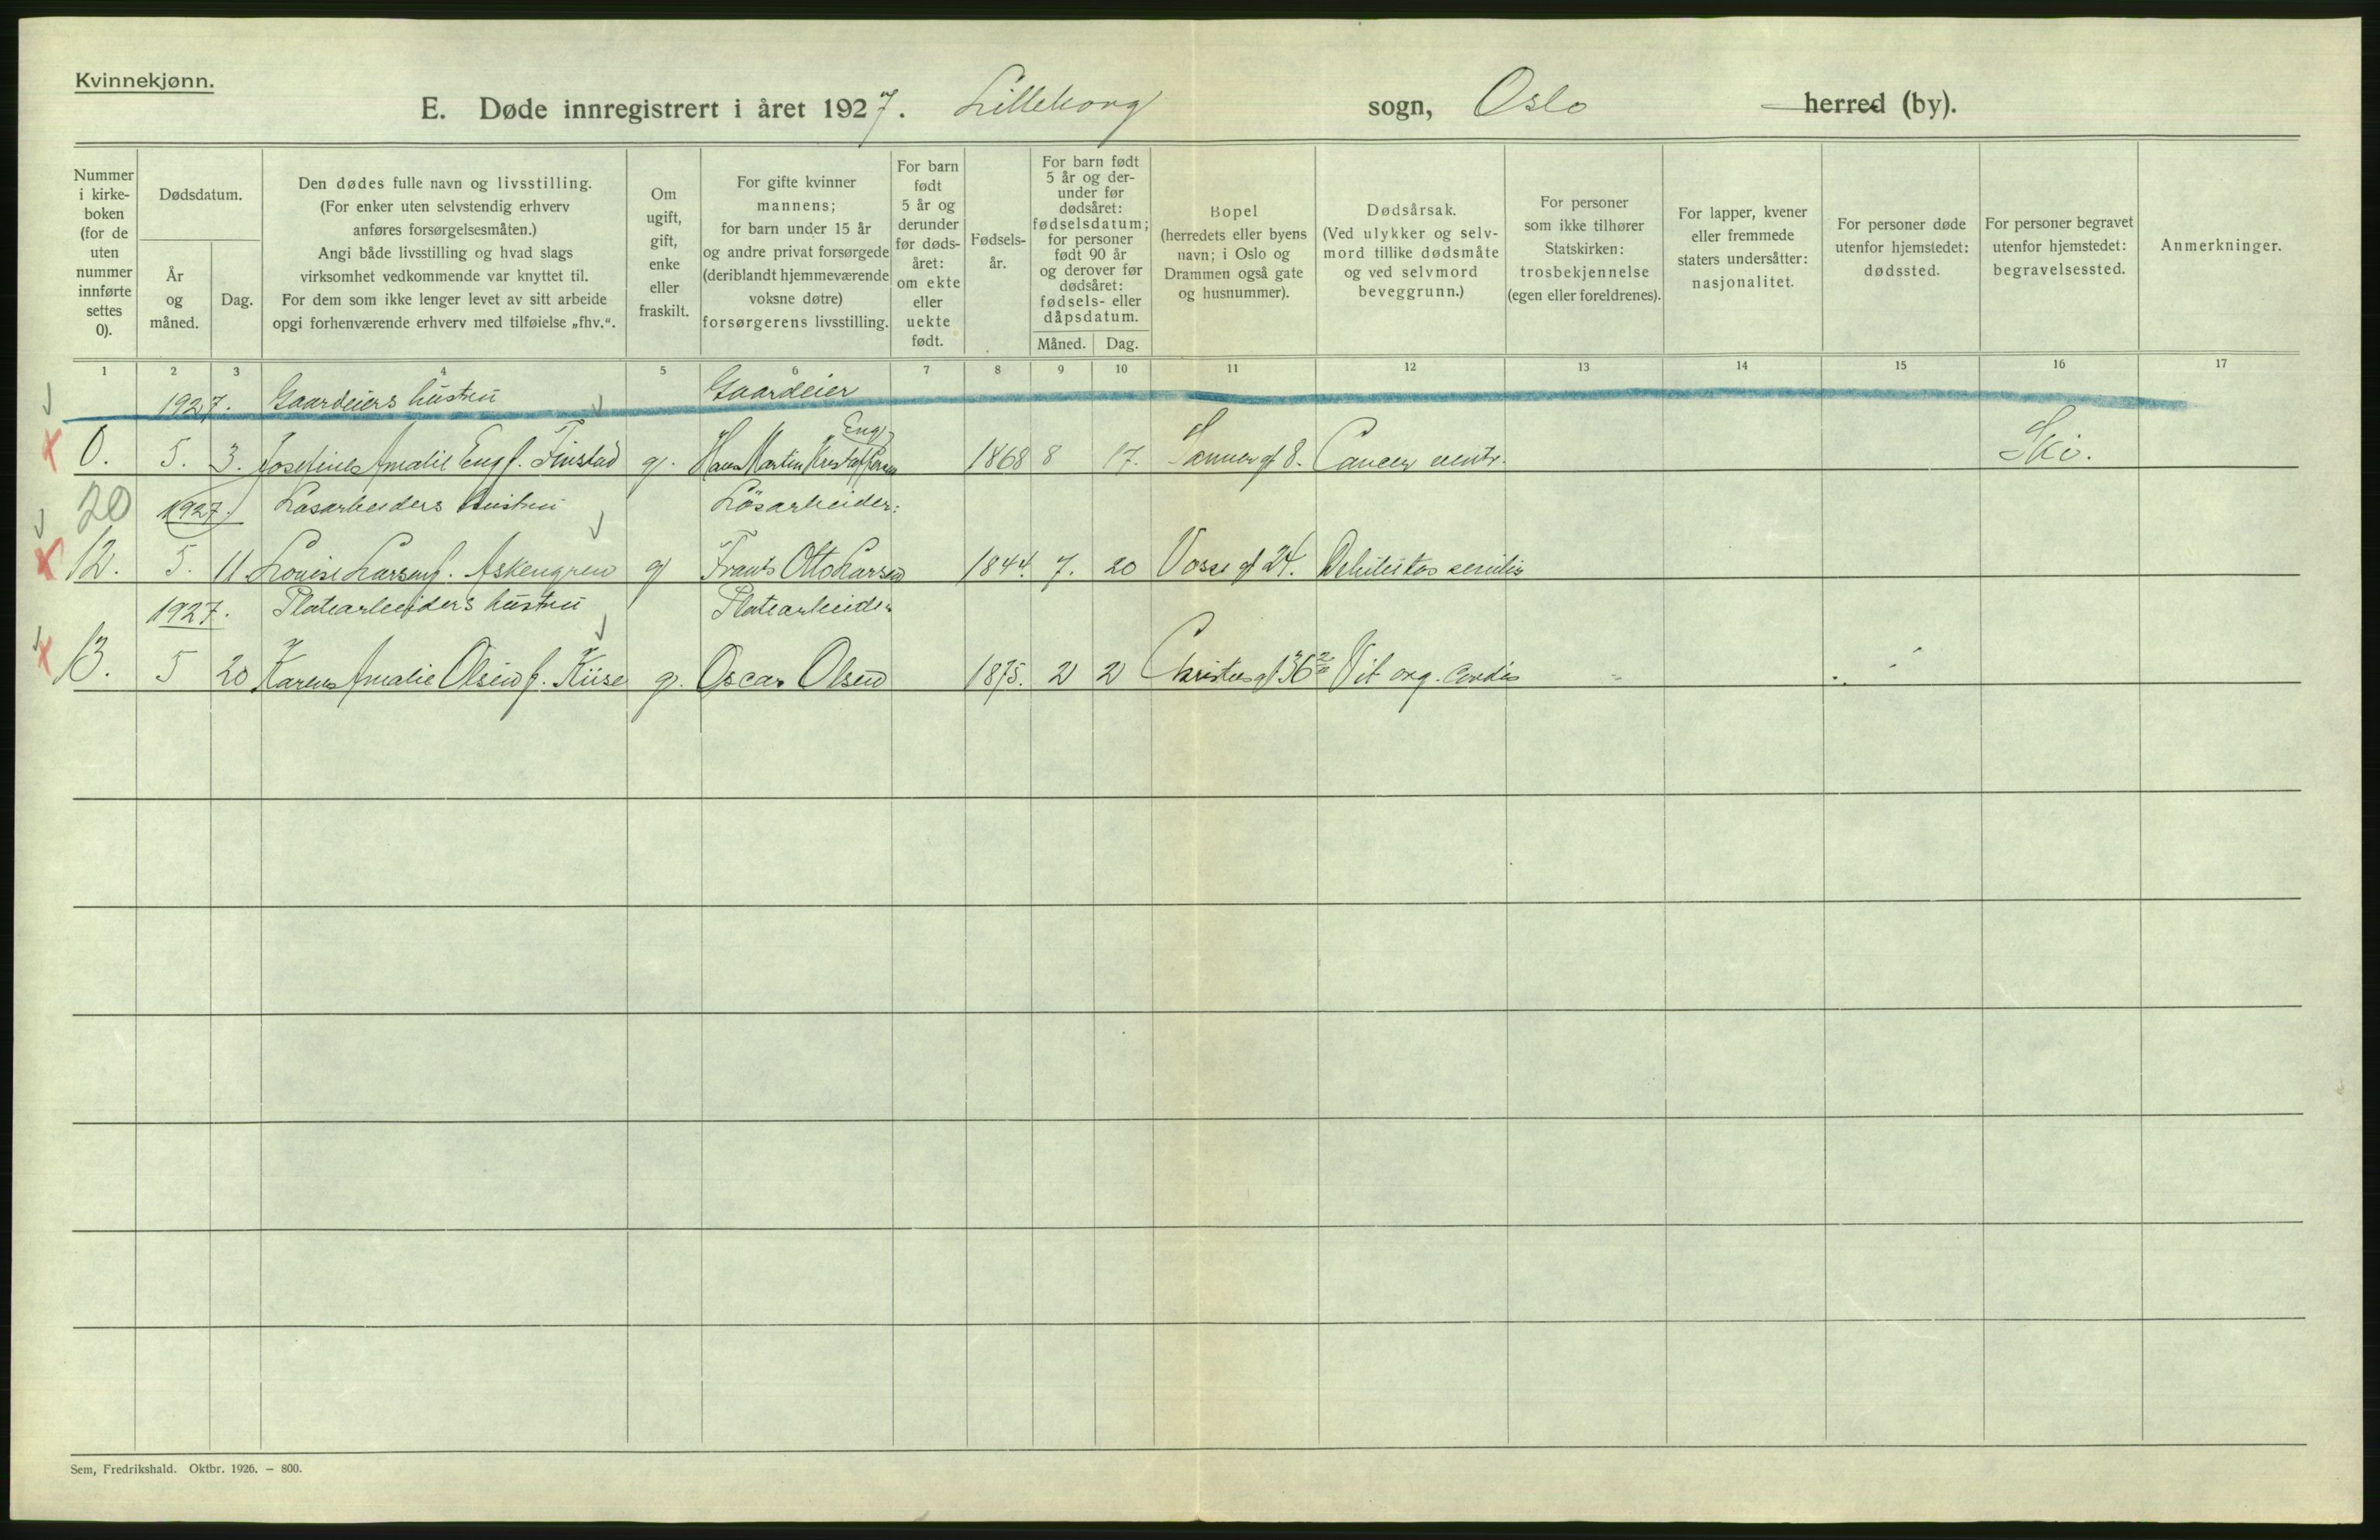 Kvinnekjønn.
E. Døde innregistrert i året 1927. Lilleborg sogn, Oslo herred (by).
Nummer i kirke-boken (for de uten nummer innførte settes 0).
Dødsdatum.
År og måned.
Dag.
Den dødes fulle navn og livsstilling.
(For enker uten selvstendig erhverv
anføres forsørgelsesmåten.)
Angi både livsstilling og hvad slags
virksomhet vedkommende var knyttet til.
For dem som ikke lenger levet av sitt arbeide
opgi forhenværende erhverv med tilføielse „fhv.“.
Om
ugift,
gift,
enke
eller
fraskilt.
For gifte kvinner
mannens;
for barn under 15 år
og andre privat forsørgede
(deriblandt hjemmeværende
voksne døtre)
forsørgerens livsstilling.
For barn
født
5 år og
derunder
før døds-
året:
om ekte
eller
uekte
født.
Fødsels-
år.
For barn født
5 år og der-
under før
dødsåret:
fødselsdatum;
for personer
født 90 år
og derover før
dødsåret:
fødsels- eller
dåpsdatum.
Måned.
Dag.
Bopel
(herredets eller byens
navn; i Oslo og
Drammen også gate
og husnummer).
Dødsårsak.
(Ved ulykker og selv-
mord tillike dødsmåte
og ved selvmord
beveggrunn.)
For personer
som ikke tilhører
Statskirken:
trosbekjennelse
(egen eller foreldrenes).
For lapper, kvener
eller fremmede
staters undersåtter:
nasjonalitet.
For personer døde
utenfor hjemstedet:
dødssted.
For personer begravet
utenfor hjemstedet:
begravelsessted.
Anmerkninger.
1 2 3 4 5 6 7 8 9 10 11 12 13 14 15 16 17
1927. Gaardeiers hustru Gaardeier
Eng
0. 5. 3. Josefine Amalie Eng f. Finstad g. Hans Martin 1868 8 17. Sannergt 8. Cancer ventr. Ski.
20 1927. Løsarbeiders hustru Løsarbeider
12. 5. 11 Louise Larsen f. Askengren g Frants Otto Larsen 1844. 7. 20 Vosse gt 24. Debilitas senilis
1927. Platearbeiders hustru Platearbeider
13. 5 20 Karen Amalie Olsen f. Kiise g. Oscar Olsen 1875. 2 2 Christies gt 36 Vit. org. cordis
Sem, Fredrikshald. Oktbr. 1926. – 800.